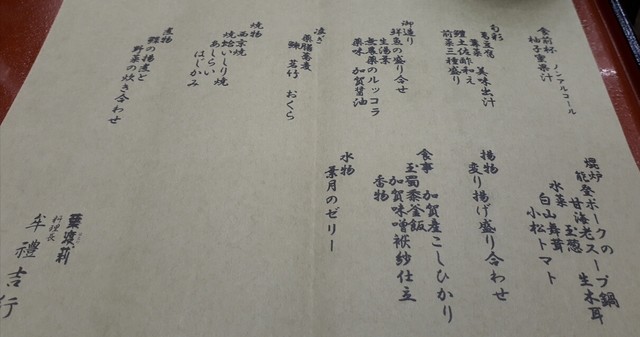 食前杯 ノンアルコール
柚子蜜果汁
旬彩
葛豆腐 美味出汁
蓴菜
鰹土佐酢和え
前菜三種盛り
御造り
鮮魚の盛り合せ
生湯葉
無農薬のルッコラ
薬味 加賀醤油
凌ぎ
薬膳蕎麦
おくら
焼物
西京焼
焼蛤いしり焼
あしらい
はじかみ
煮物
の揚煮と
野菜の炊き合わせ
焜炉
能登ポークのスープ鍋
甘海老 生木耳
玉葱
水菜
白山舞茸
小松トマト
揚物
変り揚げ盛り合わせ
食事 加賀産こしひかり
玉蜀黍釜飯
加賀味噌袱紗仕立
香物
水物
葉月のゼリー
葉渡莉
料理長
牟禮吉行